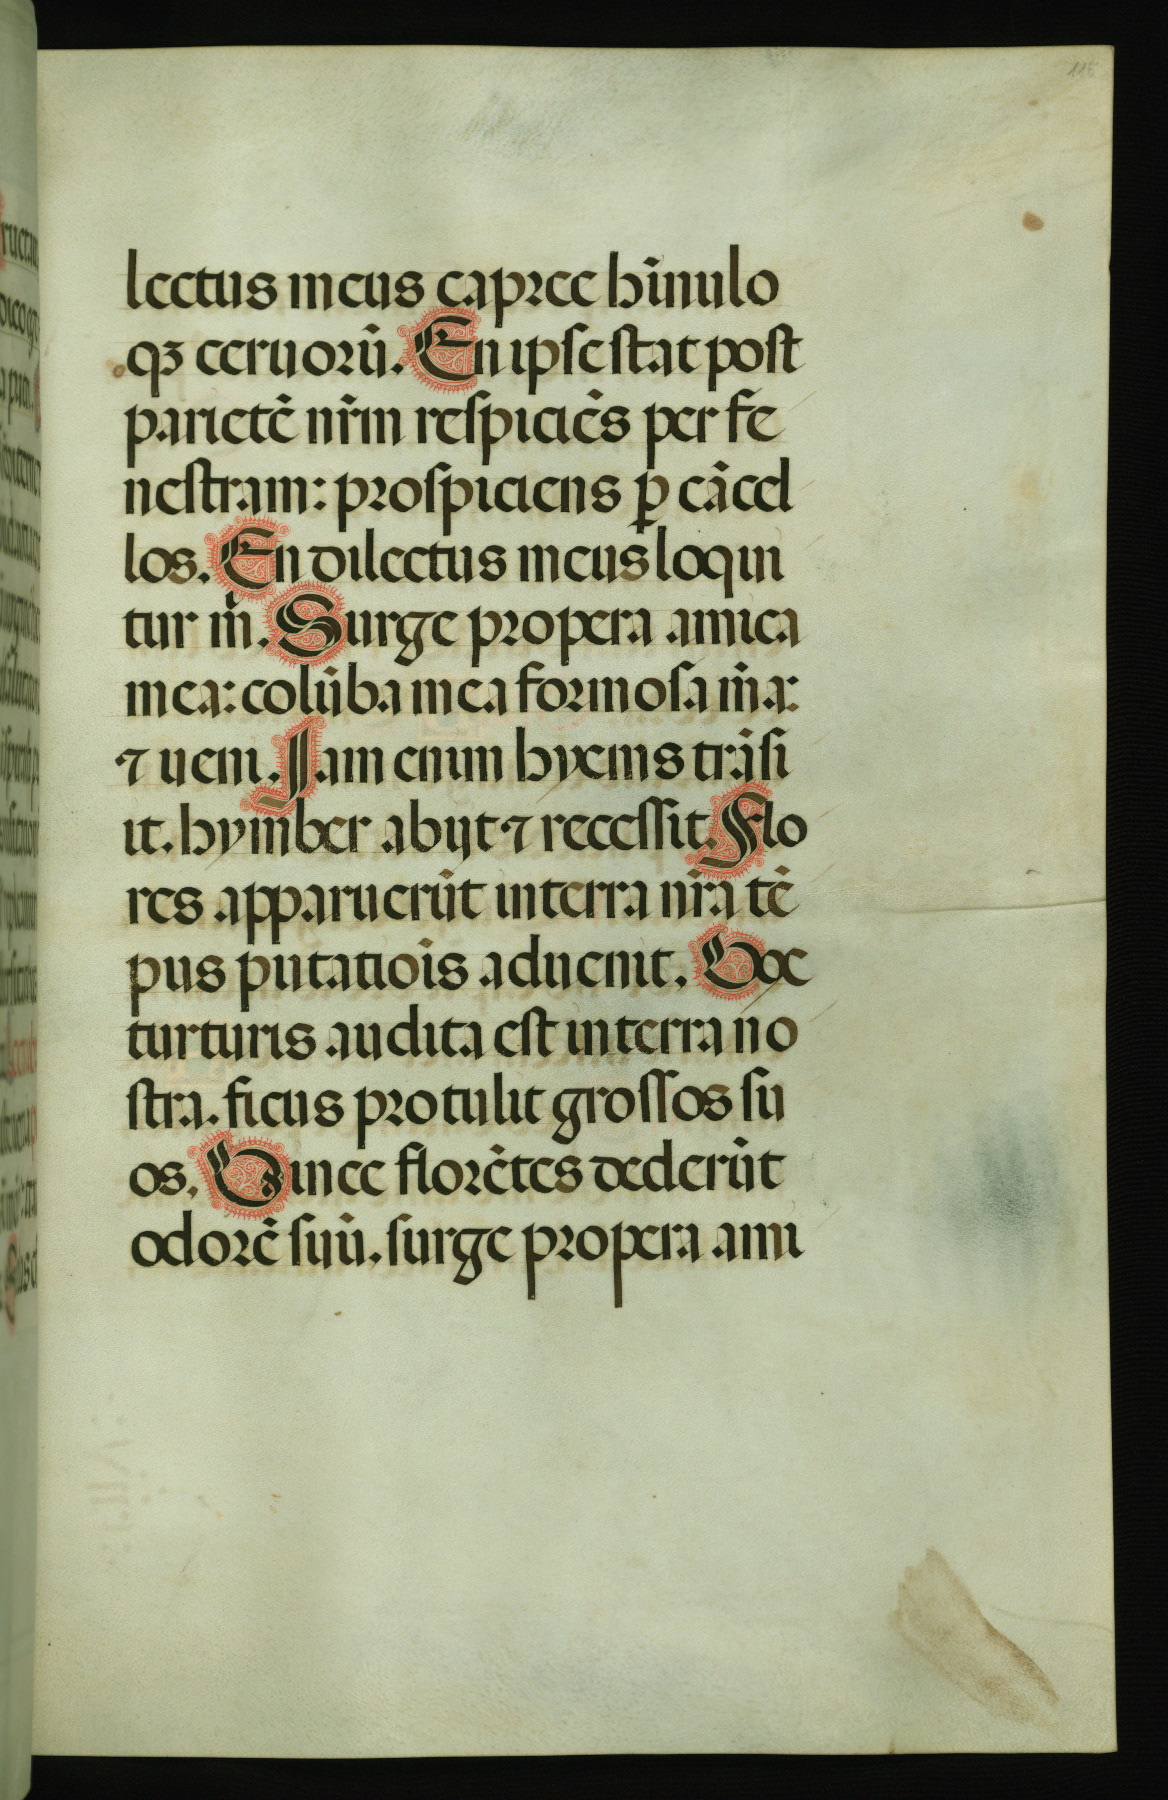 lectus meus capree hīnulo
qꝫ ceruorū. En ipse stat post
parietē nr̄m respiciēs per fe
nestram: prospiciens ꝑ cācel
los. En dilectus meus loqui
tur m̄. Surge propera amica
mea: colūba mea formosa m̄a:
⁊ ueni. Jam enim hyems trāsi
it. hymber abijt ⁊ recessit. Flo
res apparuerūt in terra nr̄a tē
pus putatiōis aduenit. Vox
turturis audita est in terra no
stra. ficus protulit grossos su
os. Vinee florētes dederūt
odorē suū. surge propera ami